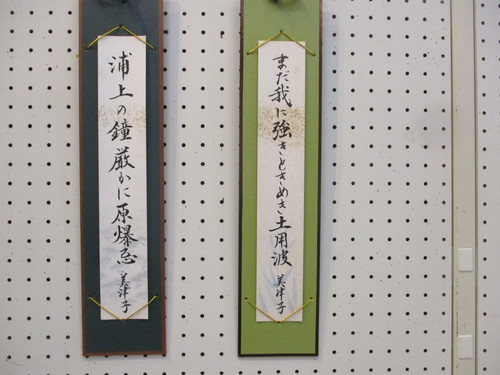 まだ我に強きときめき土用波
美津子
浦上の鐘厳かに原爆忌
美津子